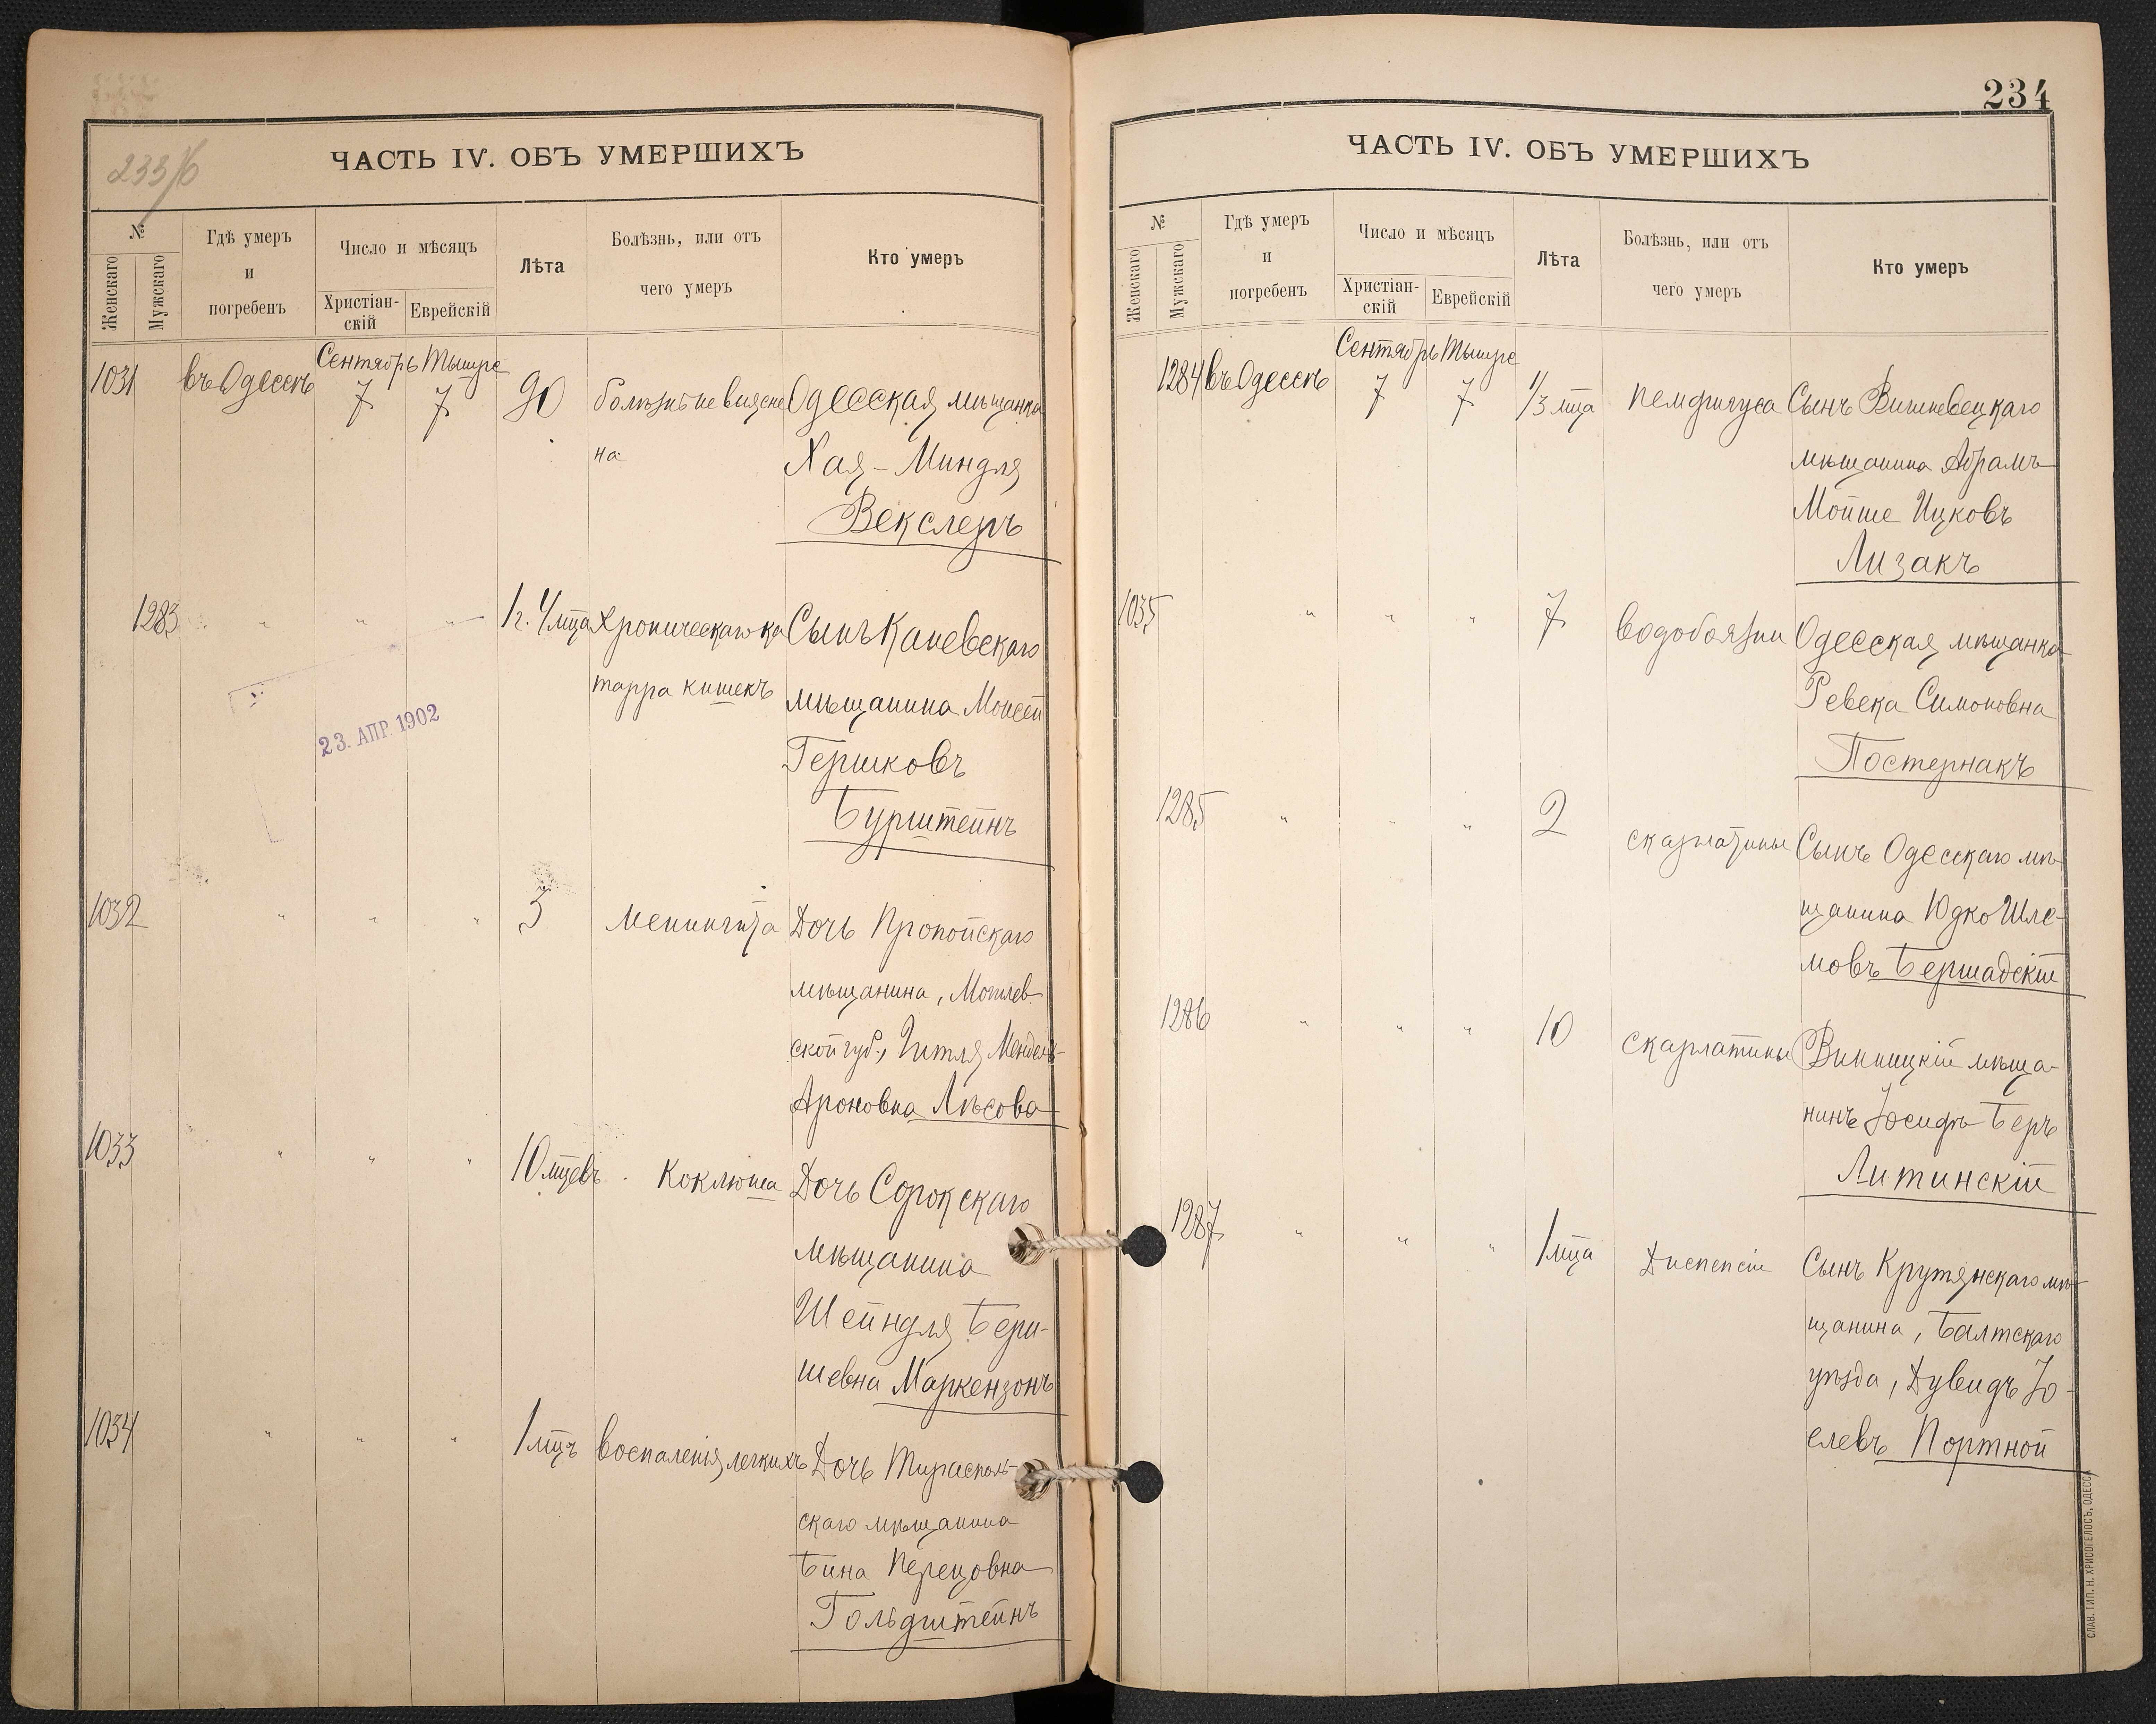 233/б
ЧАСТЬ IV. ОБЪ УМЕРШИХЪ
№
Женскаго
Мужскаго
Гдѣ умеръ
и
погребенъ
Число и мѣсяцъ
Христіан-
скій
Еврейскій
Лѣта
Болѣзнь, или отъ
чего умеръ
Кто умеръ
Сентябрь Тышре
1031 въ Одессѣ 7 7 90 болѣзнь не выясне Одесская мѣщанка
на Хая-Миндля
Векслеръ
1283 " " " 1г. 4 мца Хроническаго ка Сынъ Каневскаго
тарра кишекъ мѣщанина Моисей
Гершковъ
Бурштейнъ
23. АПР. 1902
1032 " " " 3 менингита Дочь Пропойскаго
мѣщанина, Могилев
ской губ., Гитля Мендель-
Ароновна Лѣсова
1033 " " " 10 мцевъ Коклюша Дочь Сорокскаго
мѣщанина
Шейндля Бери-
шевна Маркензонъ
1034 " " " 1 мцъ воспаленія легкихъ Дочь Тирасполь-
скаго мѣщанина
Бина Перецовна
Гольдштейнъ
234
ЧАСТЬ IV. ОБЪ УМЕРШИХЪ
№
Женскаго
Мужскаго
Гдѣ умеръ
и
погребенъ
Число и мѣсяцъ
Христіан-
скій
Еврейскій
Лѣта
Болѣзнь, или отъ
чего умеръ
Кто умеръ
Сентябрь Тышре
1284 въ Одессѣ 7 7 1/3 мца пемфигуса Сынъ Вишневецкаго
мѣщанина Абрамъ
Мойше Ицковъ
Лизакъ
1035 " " " 7 водобоязни Одесская мѣщанка
Ревека Симоновна
Постернакъ
1285 " " " 2 скарлатины Сынъ Одесскаго мѣ
щанина Юдко Шле-
мовъ Бершадскій
1286 " " " 10 скарлатины Винницкій мѣща-
нинъ Іосифъ Беръ
Литинскій
1287 " " " 1 мца Диспепсіи Сынъ Крутянскаго мѣ-
щанина, Балтскаго
уѣзда, Дувидъ Іо-
селевъ Портной
СЛАВ. ТИП. Н. ХРИСОГЕЛОСЪ, ОДЕССА